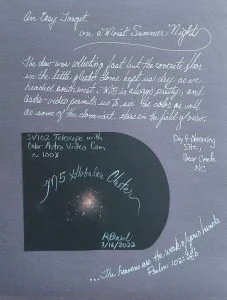 An Easy Target
on a Moist Summer Night
The dew was collecting fast but the concrete floor
in the little plastic dome kept us dry so we
headed southwest. M5 is always pretty and
Astro-video permits us to see the color as well
as some of the dominant stars in the field of view.
SV102 Telescope with
Color Astro Video Cam
~100X
M-5 Globular Cluster
7/16/2022
Observing
Site,
Bear Creek
NC
...The heavens are the work of your hands
Psalm 102:25b